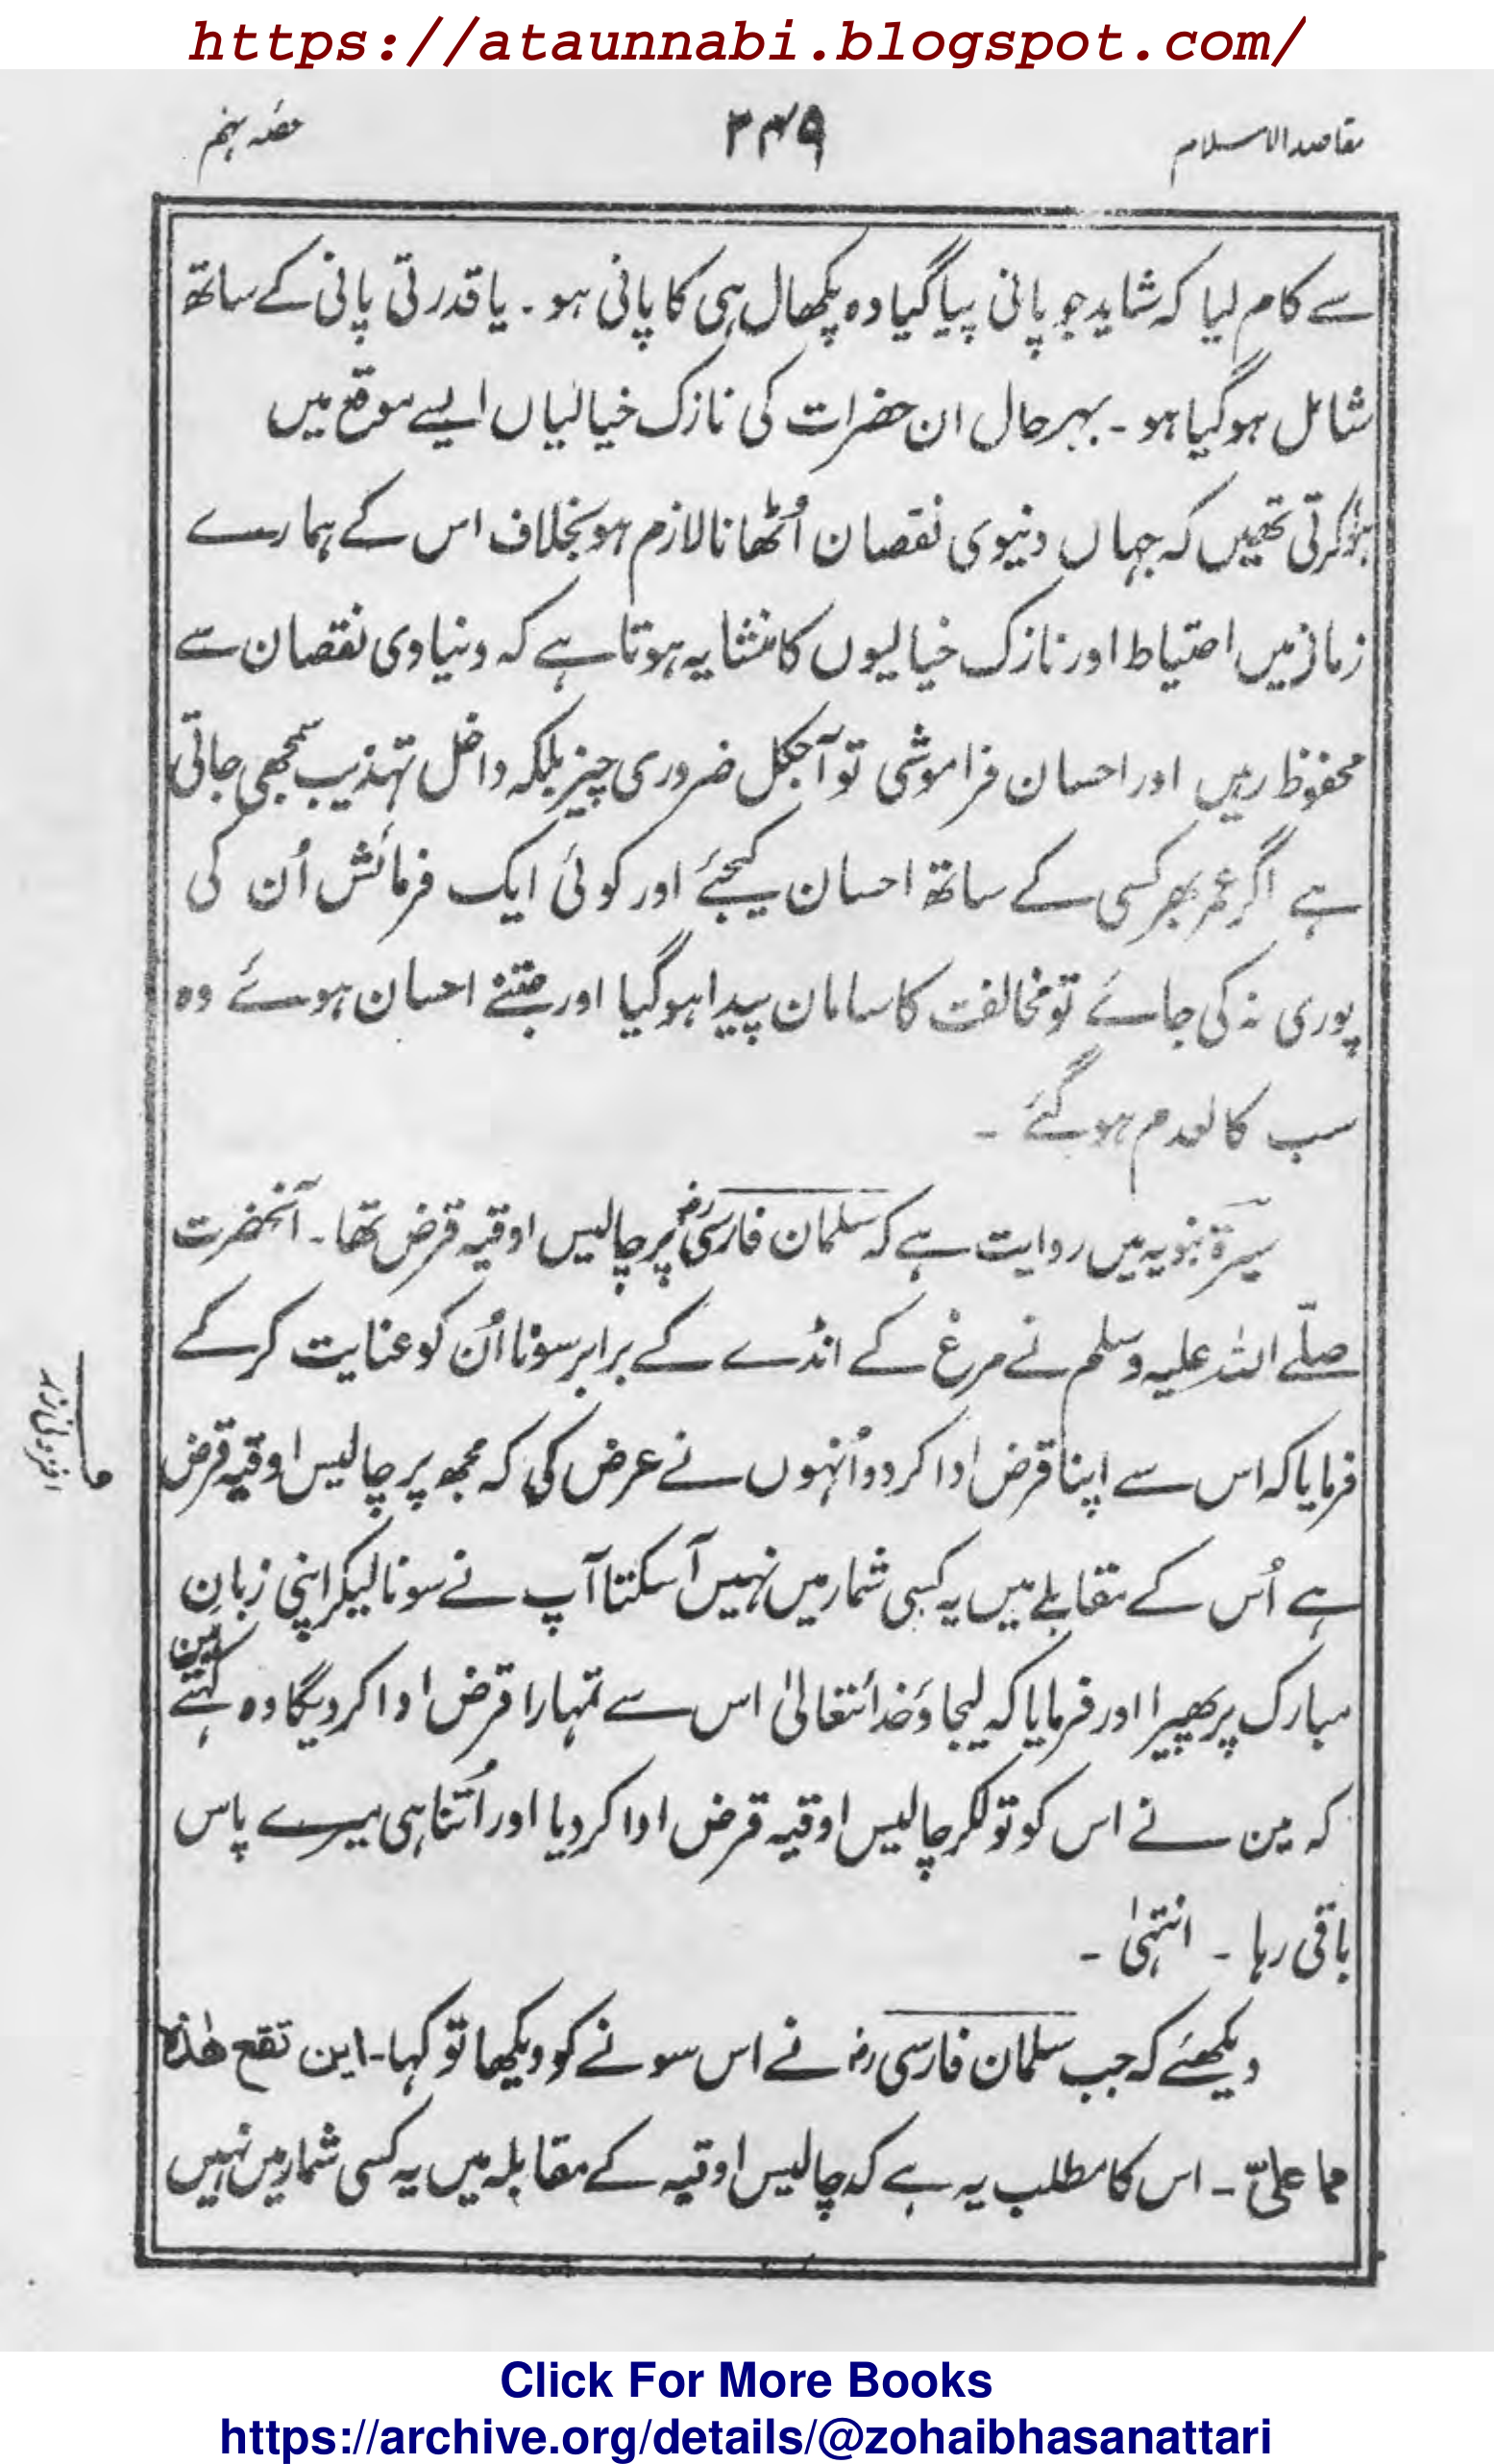 https://ataunnabi.blogspot.com/
مقاصد الاسلام
۳۴۹
حصّہ نہم
سے کام لیا کہ شاید جو پانی پیا گیا وہ پکھال ہی کا پانی ہو ۔ یا قدرتی پانی کے ساتھ
شامل ہوگیا ہو ۔ بہرحال ان حضرات کی نازک خیالیاں ایسے موقع میں
ہوا کرتی تھیں کہ جہاں دنیوی نقصان اُٹھانا لازم ہو بخلاف اس کے ہمارے
زمانہ میں احتیاط اور نازک خیالیوں کا منشا یہ ہوتا ہے کہ دنیاوی نقصان سے
محفوظ رہیں اور احسان فراموشی تو آجکل ضروری چیز بلکہ داخل تہذیب سمجھی جاتی
ہے اگر عمر بھر کسی کے ساتھ احسان کیجئے اور کوئی ایک فرمائش اُن کی
پوری نہ کی جائے تو مخالفت کا سامان پیدا ہوگیا اور جتنے احسان ہوئے وہ
سب کالعدم ہوگئے ۔
سیرۃ نبویہ میں روایت ہے کہ سلمان فارسیؓ پر چالیس اوقیہ قرض تھا ۔ آنحضرت
صلّے اللہ علیہ وسلم نے مرغ کے انڈے کے برابر سونا اُن کو عنایت کرکے
فرمایا کہ اس سے اپنا قرض ادا کردو اُنہوں نے عرض کی کہ مجھ پر چالیس اوقیہ قرض
ہے اُس کے مقابلے میں یہ کسی شمار میں نہیں آسکتا آپ نے سونا لیکر اپنی زبانِ
مبارک پر پھیرا اور فرمایا کہ لیجاؤ خدائتعالیٰ اس سے تمہارا قرض ادا کردیگا وہ کہتے ہین
کہ مین نے اس کو تولکر چالیس اوقیہ قرض ادا کردیا اور اُتنا ہی میرے پاس
باقی رہا ۔ انتہیٰ ۔
دیکھئے کہ جب سلمان فارسی رضؓ نے اس سونے کو دیکھا تو کہا ۔ این تقع ھٰذہ
مما علیّ ۔ اس کا مطلب یہ ہے کہ چالیس اوقیہ کے مقابلہ میں یہ کسی شمار میں نہیں
Click For More Books
https://archive.org/details/@zohaibhasanattari